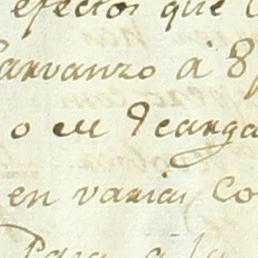 efectos que
arvanzo á 8
o en Decarga
en varias Co
Para a la